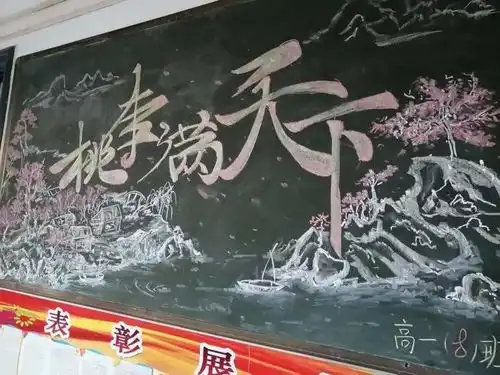 桃李满天下
高一(8)班
表彰展